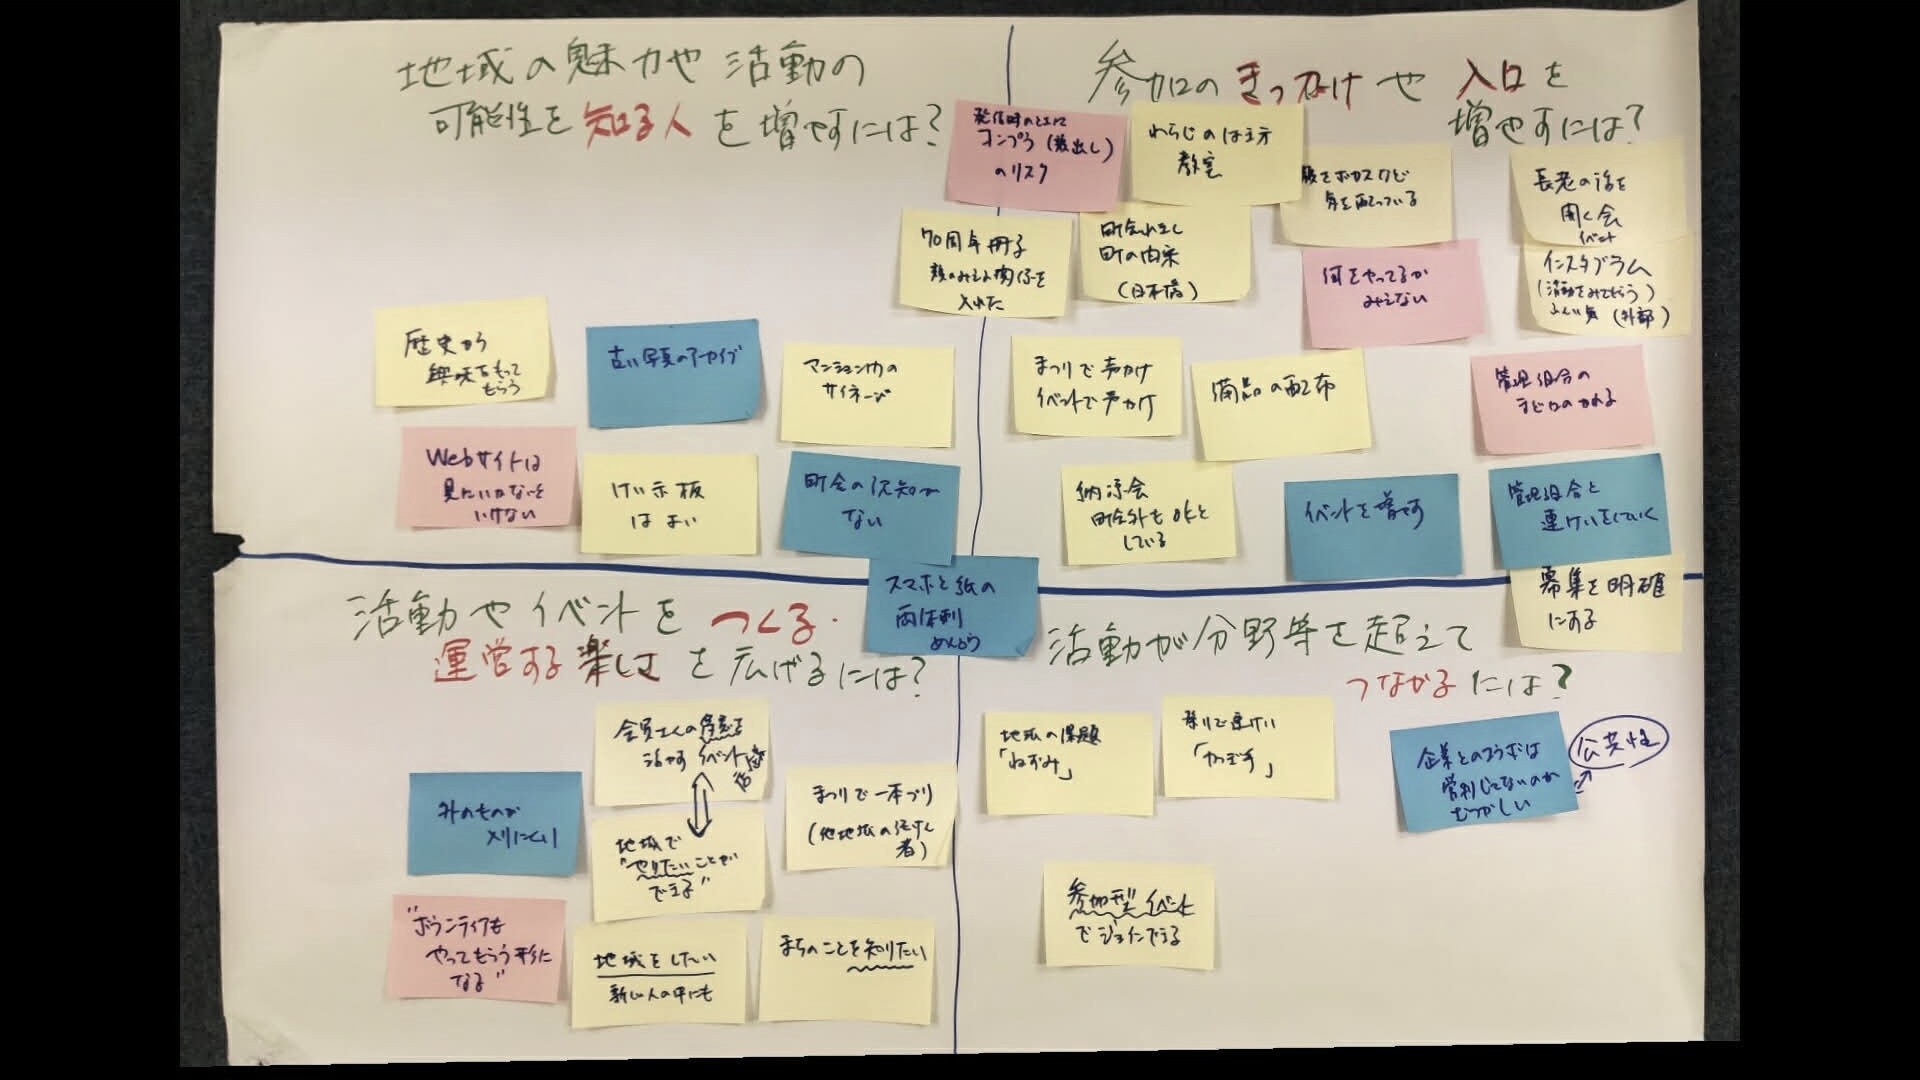 地域の魅力や活動の
可能性を知る人を増やすには?
歴史から
興味をもって
もらう
古い写真のアーカイブ
マンション内の
サイネージ
Webサイトは
見にいかないと
いけない
けい示板
はよい
町会の認知が
ない
70周年冊子
顔のみえる関係を
入れた
発信時の
コンプラ(顔出し)
のリスク
参加のきっかけや入口を
増やすには?
わらじのはき方
教室
気を配っている
長老の話を
聞く会
イベント
町の由来
(日本橋)
何をやってるか
みえない
インスタグラム
(活動をみてもらう)
ふんい気(外部)
まつりで声かけ
イベントで声かけ
備品の配布
管理組合の
納涼会
町会外もOKと
している
イベントを増やす
管理組合と
連けいをしていく
募集を明確
にする
スマホと紙の
両体制
めんどう
活動やイベントをつくる・
運営する楽しさを広げるには?
会員さんの得意を
活かすイベント
地域で
"やりたいことが
できる"
外のものが
入りにくい
まつりで一本づり
(他地域の
者)
"ボランティアも
やってもらう形に
なる"
地域をしたい
新しい人の中にも
まちのことを知りたい
活動が分野等を超えて
つながるには?
地域の課題
「ねずみ」
祭りで連けい
企業とのコラボは
営利じゃないのか
むつかしい
公共性
参加型イベント
でジョインできる